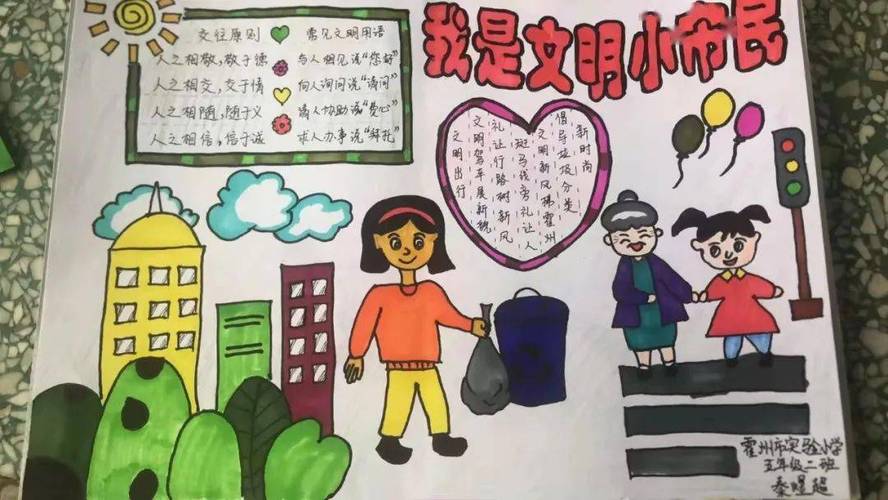 我是文明小市民
交往原则
人之相敬，敬于德
人之相交，交于情
人之相随，随于义
人之相信，信于诚
常见文明用语
与人相见说“您好”
向人询问说“请问”
请人协助说“费心”
求人办事说“拜托”
新时尚
倡导垃圾分类
文明新风拂霍州
斑马线旁礼让人
礼让行路树新风
文明驾车展新貌
文明出行
霍州市实验小学
五年级二班
秦煜超